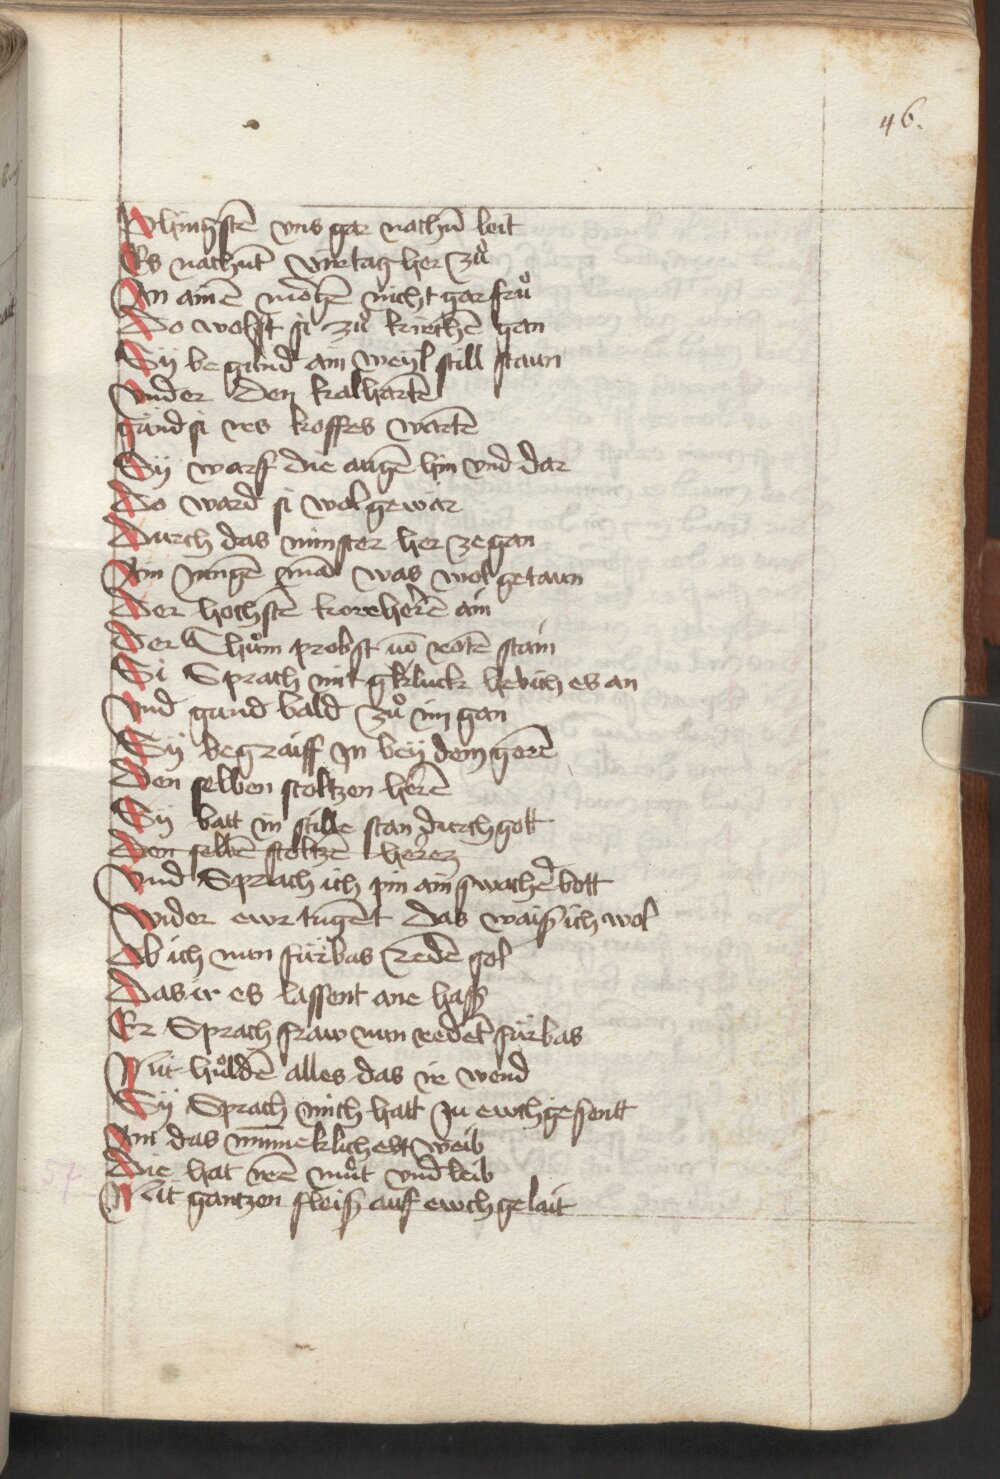 46.
Phingstē vns gar nachn̄ leit
Es nachnt̄ virtag her zů
An ainē morgē nicht gar frů
Do wolst si zů kirchē gan
Sÿ begund ain weyl still staun
Vnder den kalhartē
gund si res koffes wartē
Sÿ warf die augē hin vnd dar
Do ward si wol gewar
Durch das münster her ze gan
Ain iungē man was wol getaun
Der hochstē korehērē ain
Der Thům probst uō rotē stain
Si Sprach mit gkluck heb ich es an
Vnd gund bald zů im gan
Sÿ begraiff In beÿ dem gerē
Den selben stoltzen hērē
Sÿ batt in stille stan durch gott
Den selbē stoltzē herrez
Vnd Sprach ich pin ain swachē bott
Wider ewr tugēt das waiß ich wol
Ob ich nun fürbas redē sol
Das ir es lassent ane haß
Er Sprach fraw nun redet̄ fürbas
Mit huͦldē alles das ir wend
Sÿ Sprach mich hatt zu ewch gesentt
Ain das minneklichest weib
Die hat irē můt vnd leib
57
Mit gantzen fleiß auf ewch gelait